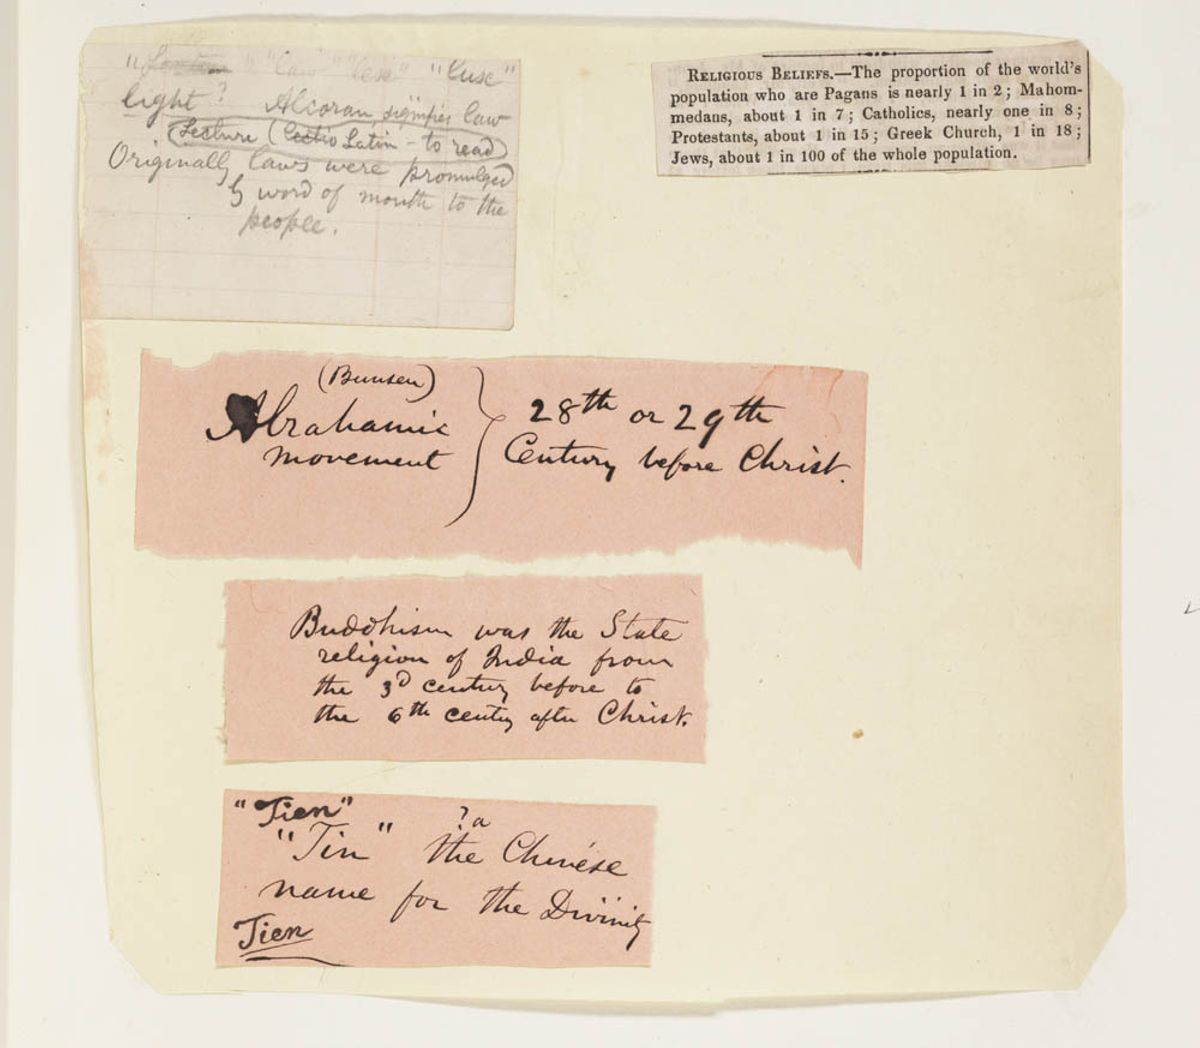 " "Law" "Lex" "Luse"
light? Alcoran signifies law
Lecture (Lectio Latin - to read)
Originally laws were promulged
by word of mouth to the
people.
RELIGIOUS BELIEFS.—The proportion of the world's
population who are Pagans is nearly 1 in 2; Mahom-
medans, about 1 in 7; Catholics, nearly one in 8;
Protestants, about 1 in 15; Greek Church, 1 in 18;
Jews, about 1 in 100 of the whole population.
(Bunsen)
Abrahamic
movement
28th or 29th
Century before Christ.
Buddhism was the State
religion of India from
the 3d century before to
the 6th centy after Christ.
"Tien"
? a
"Tin" the Chinese
name for the Divinity
Tien